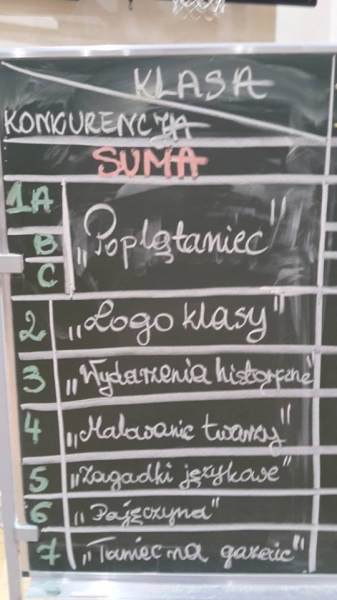 KLASA
KONKURENCJA
SUMA
1A
B
C
„Poplątaniec"
2 „Logo klasy"
3 „Wydarzenia historyczne"
4 „Malowanie twarzy"
5 „Zagadki językowe"
6 „Pajęczyna"
7 „Taniec na gazecie"